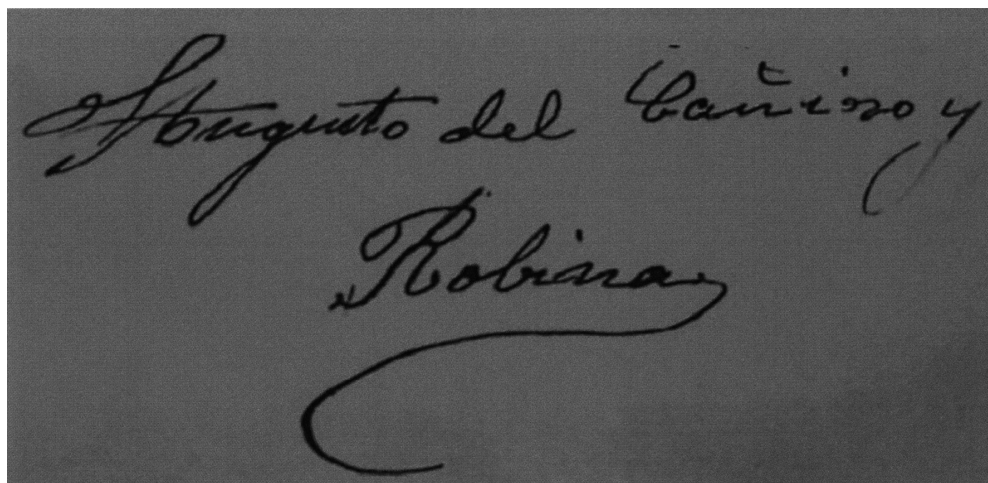 Augusto del Cañizo y
Robina